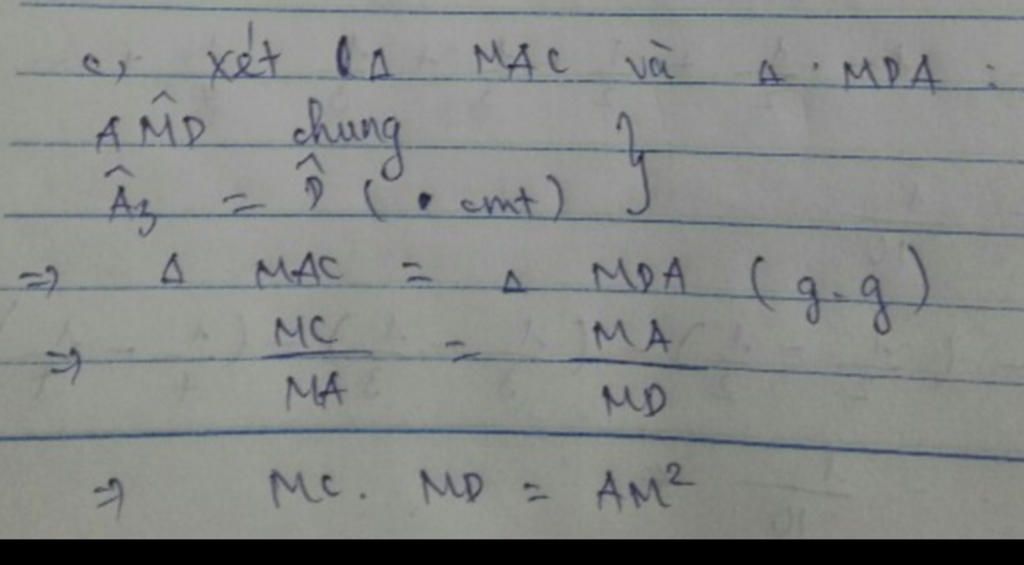 c, xét Δ MAC và Δ MDA :
AM̂D chung }
Â₃ = D̂ ( cmt)
⇒ Δ MAC = Δ MDA (g.g)
⇒ MC/MA = MA/MD
⇒ MC. MD = AM²